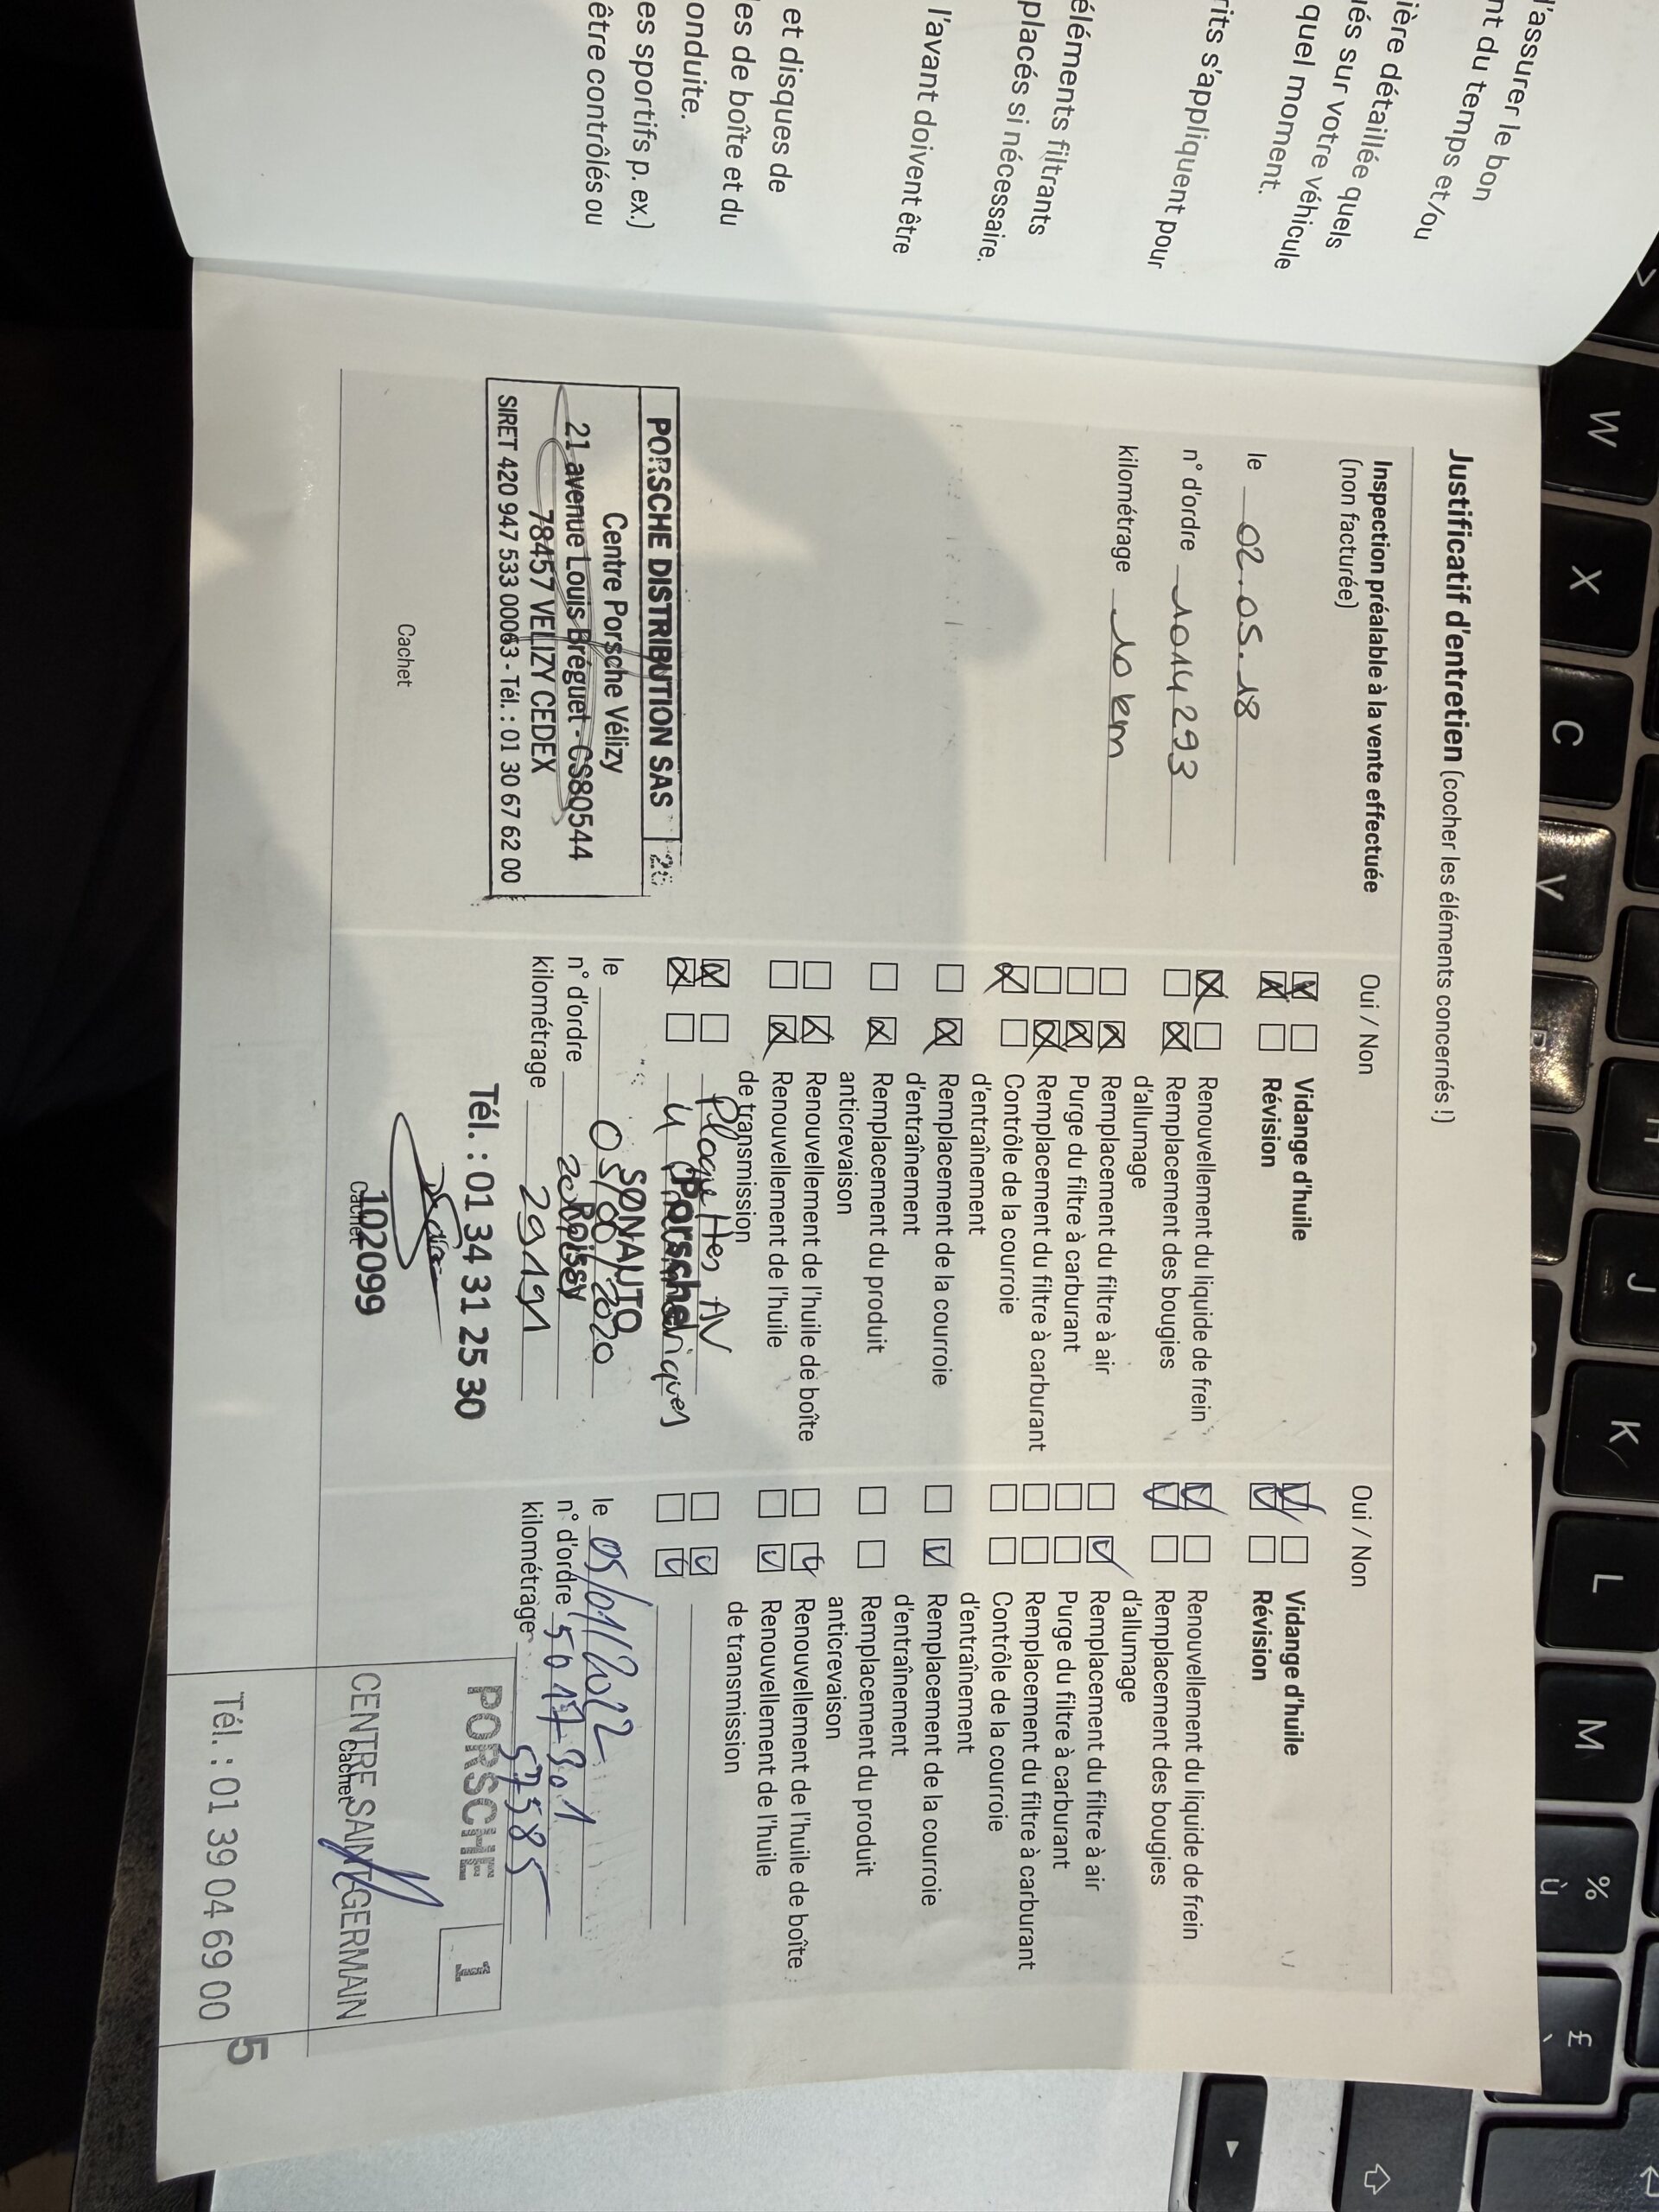 l'assurer le bon
nt du temps et/ou
ière détaillée quels
ués sur votre véhicule
quel moment.
rits s'appliquent pour
éléments filtrants
placés si nécessaire.
l'avant doivent être
et disques de
es de boîte et du
onduite.
es sportifs p. ex.)
être contrôlés ou
Justificatif d'entretien (cocher les éléments concernés !)
Inspection préalable à la vente effectuée
(non facturée)
le 02.05.18
n° d'ordre 1014293
kilométrage 10 km
PORSCHE DISTRIBUTION SAS
Centre Porsche Vélizy
21 avenue Louis Bréguet - CS80544
78457 VELIZY CEDEX
SIRET 420 947 533 00063 - Tél. : 01 30 67 62 00
Cachet
Oui / Non
Vidange d'huile
Révision
Renouvellement du liquide de frein
Remplacement des bougies
d'allumage
Remplacement du filtre à air
Purge du filtre à carburant
Remplacement du filtre à carburant
Contrôle de la courroie
d'entraînement
Remplacement de la courroie
d'entraînement
Remplacement du produit
anticrevaison
Renouvellement de l'huile de boîte
Renouvellement de l'huile
de transmission
Plaquettes AV
4
Porsche
SONAUTO
Roissy
le 05/08/2020
n° d'ordre
kilométrage 29191
Tél. : 01 34 31 25 30
102099
Cachet
Oui / Non
Vidange d'huile
Révision
Renouvellement du liquide de frein
Remplacement des bougies
d'allumage
Remplacement du filtre à air
Purge du filtre à carburant
Remplacement du filtre à carburant
Contrôle de la courroie
d'entraînement
Remplacement de la courroie
d'entraînement
Remplacement du produit
anticrevaison
Renouvellement de l'huile de boîte
Renouvellement de l'huile
de transmission
le 05/01/2022
n° d'ordre 5017301
kilométrage 57585
PORSCHE 1
CENTRE SAINT-GERMAIN
Cachet
Tél. : 01 39 04 69 00
5
W
X
C
V
J
K
L
M
%
ù
£